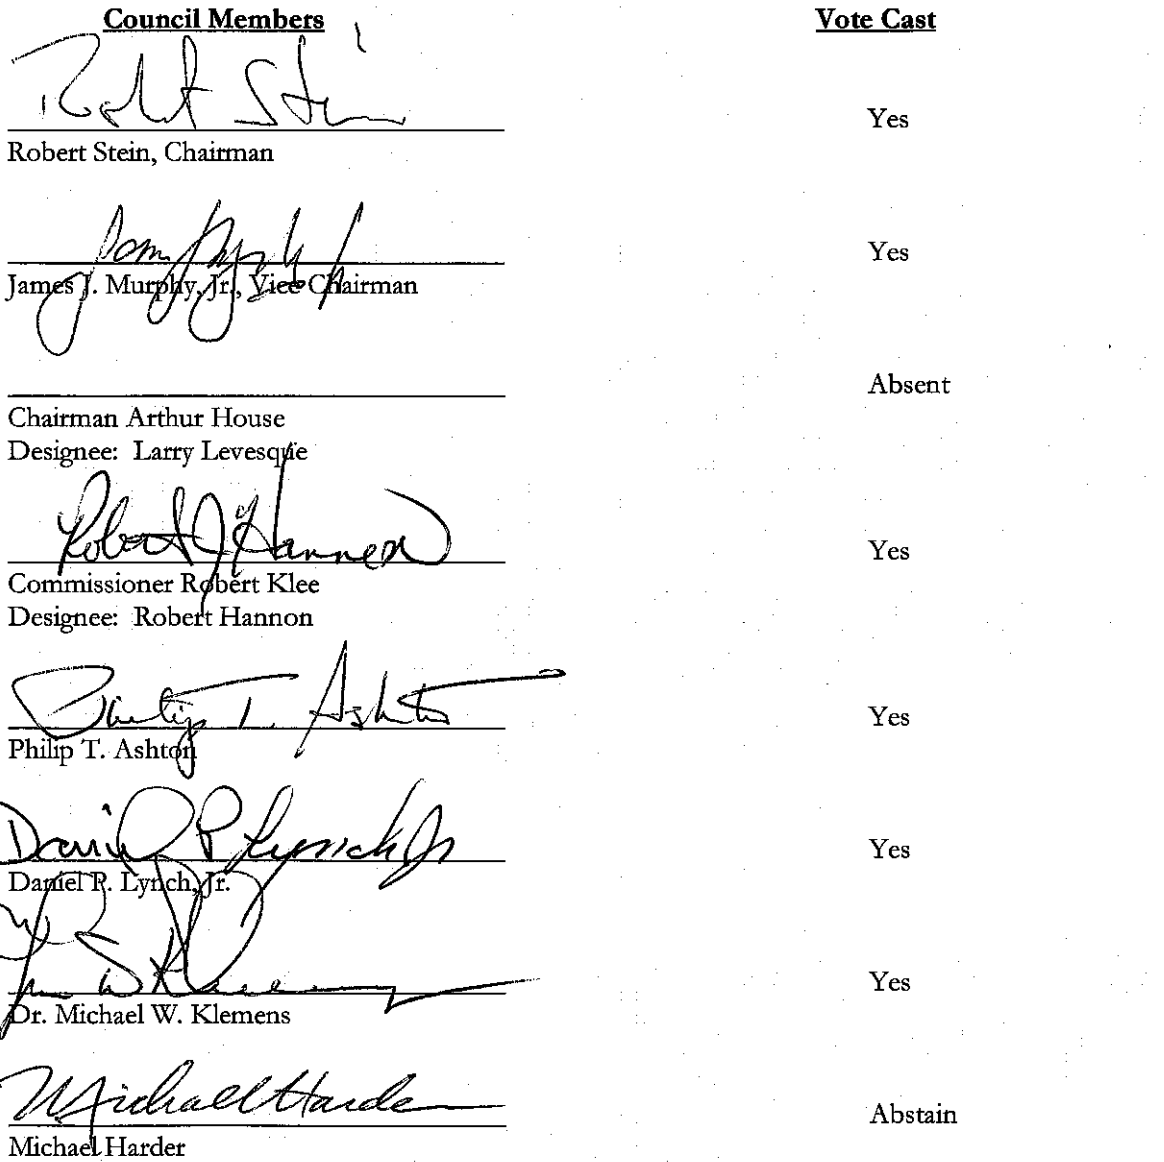 Council Members Vote Cast
Robert Stein Yes
Robert Stein, Chairman
Yes
James J. Murphy, Jr., Vice Chairman
Absent
Chairman Arthur House
Designee: Larry Levesque
Robert J Hannon Yes
Commissioner Robert Klee
Designee: Robert Hannon
Philip T. Ashton Yes
Philip T. Ashton
Daniel P Lynch Jr Yes
Daniel P. Lynch, Jr.
Yes
Dr. Michael W. Klemens
Michael Harder Abstain
Michael Harder